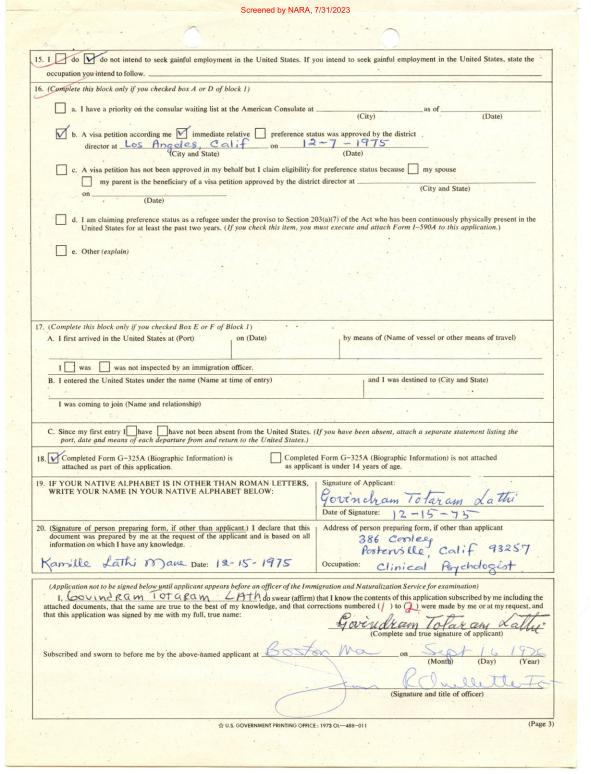 Screened by NARA, 7/31/2023
15. I do do not intend to seek gainful employment in the United States. If you intend to seek gainful employment in the United States, state the
occupation you intend to follow.
16. (Complete this block only if you checked box A or D of block 1)
a. I have a priority on the consular waiting list at the American Consulate at as of
(City) (Date)
b. A visa petition according me immediate relative preference status was approved by the district
director at Los Angeles, Calif on 12-7-1975
(City and State) (Date)
c. A visa petition has not been approved in my behalf but I claim eligibility for preference status because my spouse
my parent is the beneficiary of a visa petition approved by the district director at
(City and State)
on
(Date)
d. I am claiming preference status as a refugee under the proviso to Section 203(a)(7) of the Act who has been continuously physically present in the
United States for at least the past two years. (If you check this item, you must execute and attach Form I-590A to this application.)
e. Other (explain)
17. (Complete this block only if you checked Box E or F of Block 1)
A. I first arrived in the United States at (Port) on (Date) by means of (Name of vessel or other means of travel)
I was was not inspected by an immigration officer.
B. I entered the United States under the name (Name at time of entry) and I was destined to (City and State)
I was coming to join (Name and relationship)
C. Since my first entry I have have not been absent from the United States. (If you have been absent, attach a separate statement listing the
port, date and means of each departure from and return to the United States.)
18. Completed Form G-325A (Biographic Information) is Completed Form G-325A (Biographic Information) is not attached
attached as part of this application. as applicant is under 14 years of age.
19. IF YOUR NATIVE ALPHABET IS IN OTHER THAN ROMAN LETTERS,
WRITE YOUR NAME IN YOUR NATIVE ALPHABET BELOW:
Signature of Applicant:
Govindram Totaram Lathi
Date of Signature: 12-15-75
20. (Signature of person preparing form, if other than applicant.) I declare that this
document was prepared by me at the request of the applicant and is based on all
information on which I have any knowledge.
Kamille Lathi Date: 12-15-1975
Address of person preparing form, if other than applicant
386 Conley
Porterville, Calif 93257
Occupation: Clinical Psychologist
(Application not to be signed below until applicant appears before an officer of the Immigration and Naturalization Service for examination)
I, Govindram Totaram LAthi do swear (affirm) that I know the contents of this application subscribed by me including the
attached documents, that the same are true to the best of my knowledge, and that corrections numbered (1) to (2) were made by me or at my request, and
that this application was signed by me with my full, true name:
Govindram Totaram Lathi
(Complete and true signature of applicant)
Subscribed and sworn to before me by the above-named applicant at Boston Ma on Sept 16 1976
(Month) (Day) (Year)
(Signature and title of officer)
☆ U.S. GOVERNMENT PRINTING OFFICE : 1973 OL-488-011
(Page 3)